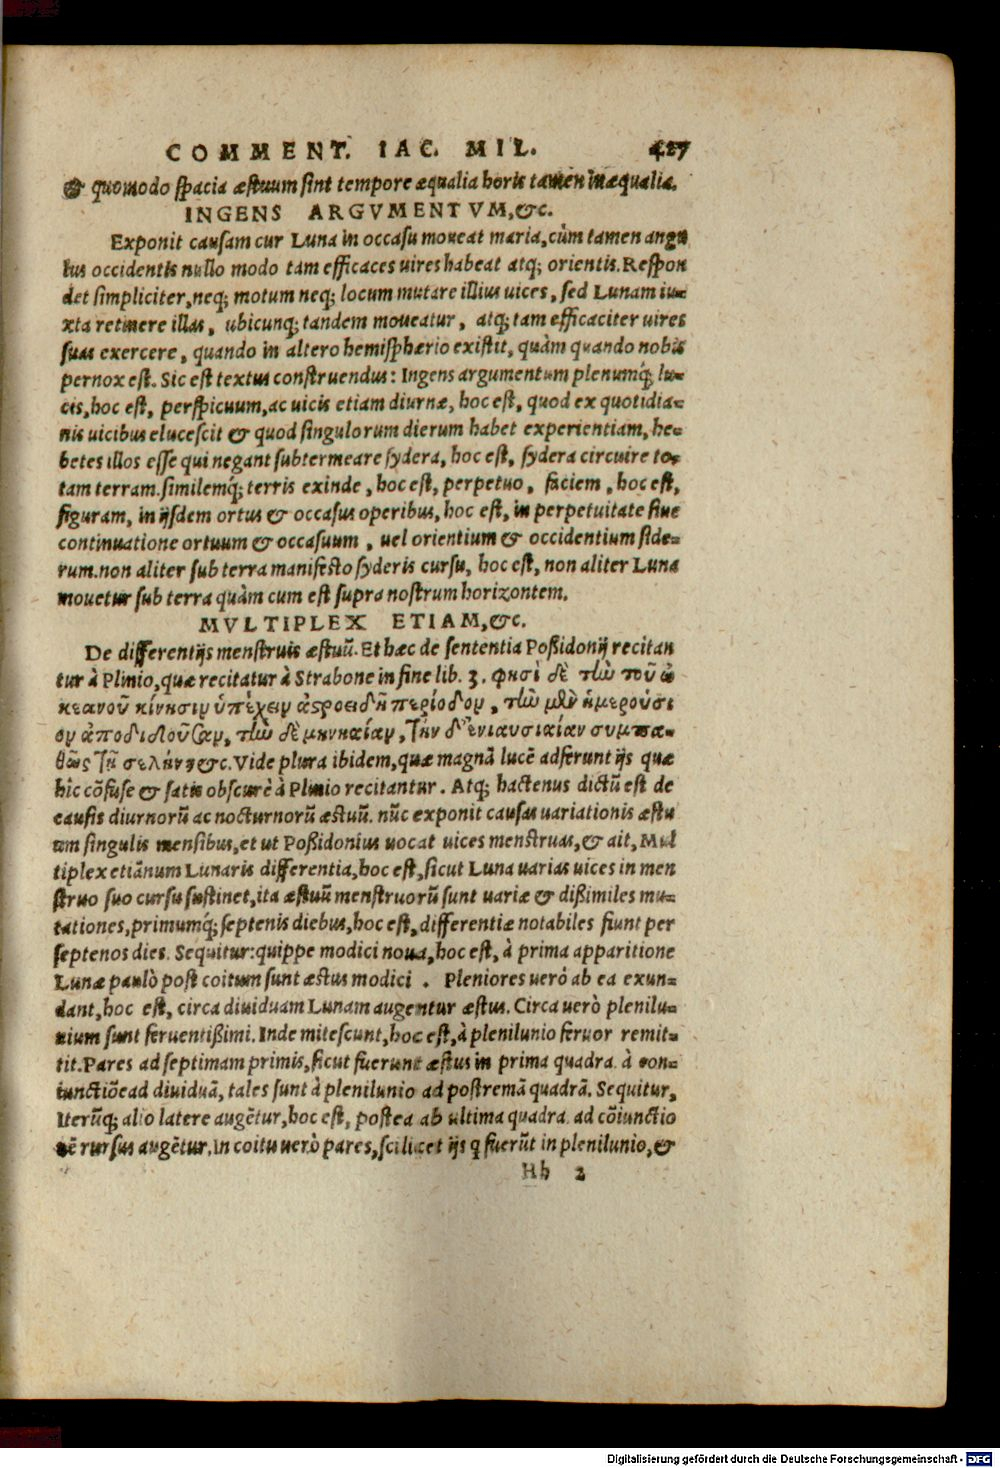 COMMENT. IAC. MIL. 427
& quomodo spacia æstuum sint tempore æqualia horis tamen inæqualia.
INGENS ARGVMENTVM, &c.
Exponit causam cur Luna in occasu moueat maria, cùm tamen angu
lus occidentis nullo modo tam efficaces uires habeat atq; orientis. Respon
det simpliciter, neq; motum neq; locum mutare illius uices, sed Lunam iu=
xta retinere illas, ubicunq; tandem moueatur, atq; tam efficaciter uires
suas exercere, quando in altero hemisphærio existit, quàm quando nobis
pernox est. Sic est textus construendus: Ingens argumentum plenumq; lu=
cis, hoc est, perspicuum, ac uicis etiam diurnæ, hoc est, quod ex quotidia=
nis uicibus elucescit & quod singulorum dierum habet experientiam, he=
betes illos esse qui negant subtermeare sydera, hoc est, sydera circuire to=
tam terram. similemq́; terris exinde, hoc est, perpetuo, faciem, hoc est,
figuram, in ijsdem ortus & occasus operibus, hoc est, in perpetuitate siue
continuatione ortuum & occasuum, uel orientium & occidentium side=
rum. non aliter sub terra manifesto syderis cursu, hoc est, non aliter Luna
mouetur sub terra quàm cum est supra nostrum horizontem.
MVLTIPLEX ETIAM, &c.
De differentijs menstruis æstuũ. Et hæc de sententia Poßidonij recitan
tur à Plinio, quæ recitatur à Strabone in fine lib. 3. φησὶ δὲ τὼ τοῦ ὠ
κεανοῦ κίνησιν ὑπέχειν ἀστροειδῆ περίοδον, τὼ μὲν ἡμερούσι
ον ἀποδιδοῦσαν, τὼ δὲ μηνιαίαν, τὴν δ' ἐνιαυσιαίαν συμπα=
θῶς τῇ σελήνῃ &c. Vide plura ibidem, quæ magnã lucẽ adferunt ijs quæ
hîc cõfuse & satis obscurè à Plinio recitantur. Atq; hactenus dictũ est de
causis diurnorũ ac nocturnorũ æstuũ. nũc exponit causas uariationis æstu
um singulis mensibus, et ut Poßidonius uocat uices menstruas, & ait, Mul
tiplex etiã̃num Lunaris differentia, hoc est, sicut Luna uarias uices in men
struo suo cursu sustinet, ita æstuũ menstruorũ sunt uariæ & dißimiles mu=
tationes, primumq́; septenis diebus, hoc est, differentiæ notabiles fiunt per
septenos dies. Sequitur: quippe modici noua, hoc est, à prima apparitione
Lunæ paulò post coitum sunt æstus modici. Pleniores uerò ab ea exun=
dant, hoc est, circa diuiduam Lunam augentur æstus. Circa uerò plenilu=
nium sunt feruentißimi. Inde mitescunt, hoc est, à plenilunio feruor remit=
tit. Pares ad septimam primis, sicut fuerunt æstus in prima quadra à con=
iunctiõe ad diuiduã, tales sunt à plenilunio ad postremã quadrã. Sequitur,
Iterũq; alio latere augẽtur, hoc est, postea ab ultima quadra ad cõiunctio
nẽ rursus augẽtur. In coitu uerò pares, scilicet ijs q fuerũt in plenilunio, &
Hh 2
Digitalisierung gefördert durch die Deutsche Forschungsgemeinschaft - DFG